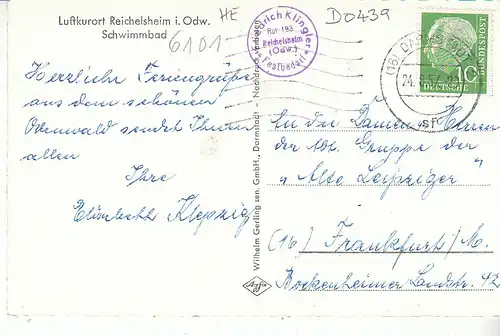 Luftkurort Reichelsheim i. Odw.
Schwimmbad
HE
6101
D0439
Friedrich Klingler
Ruf: 193
Reichelsheim
(Odw.)
24.
DEUTSCHE
BUNDESPOST
10
Herzliche Feriengrüße
aus dem schönen
Odenwald sendet Ihnen
allen
Ihre
Elisabeth Klepzig
Wilhelm Gerling sen. GmbH., Darmstadt - Nachdruck verboten
Agfa
An die Damen, Herren
der Gruppe der
„Alte Leipziger"
(16) Frankfurt/M.
Bockenheimer Landstr. 42